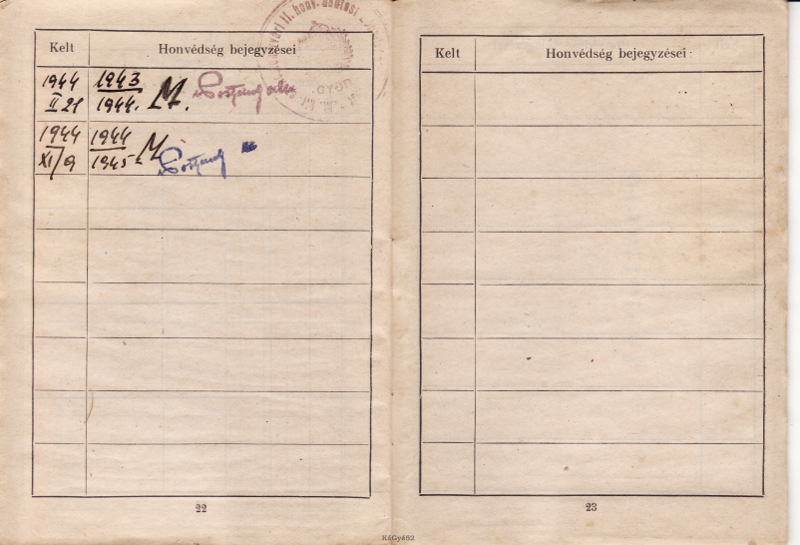 Kelt
Honvédség bejegyzései
1944
II 21
1943
1944. M.
1944
XI/9
1944
1945 M
22
Kelt
Honvédség bejegyzései
23
KáGyá52